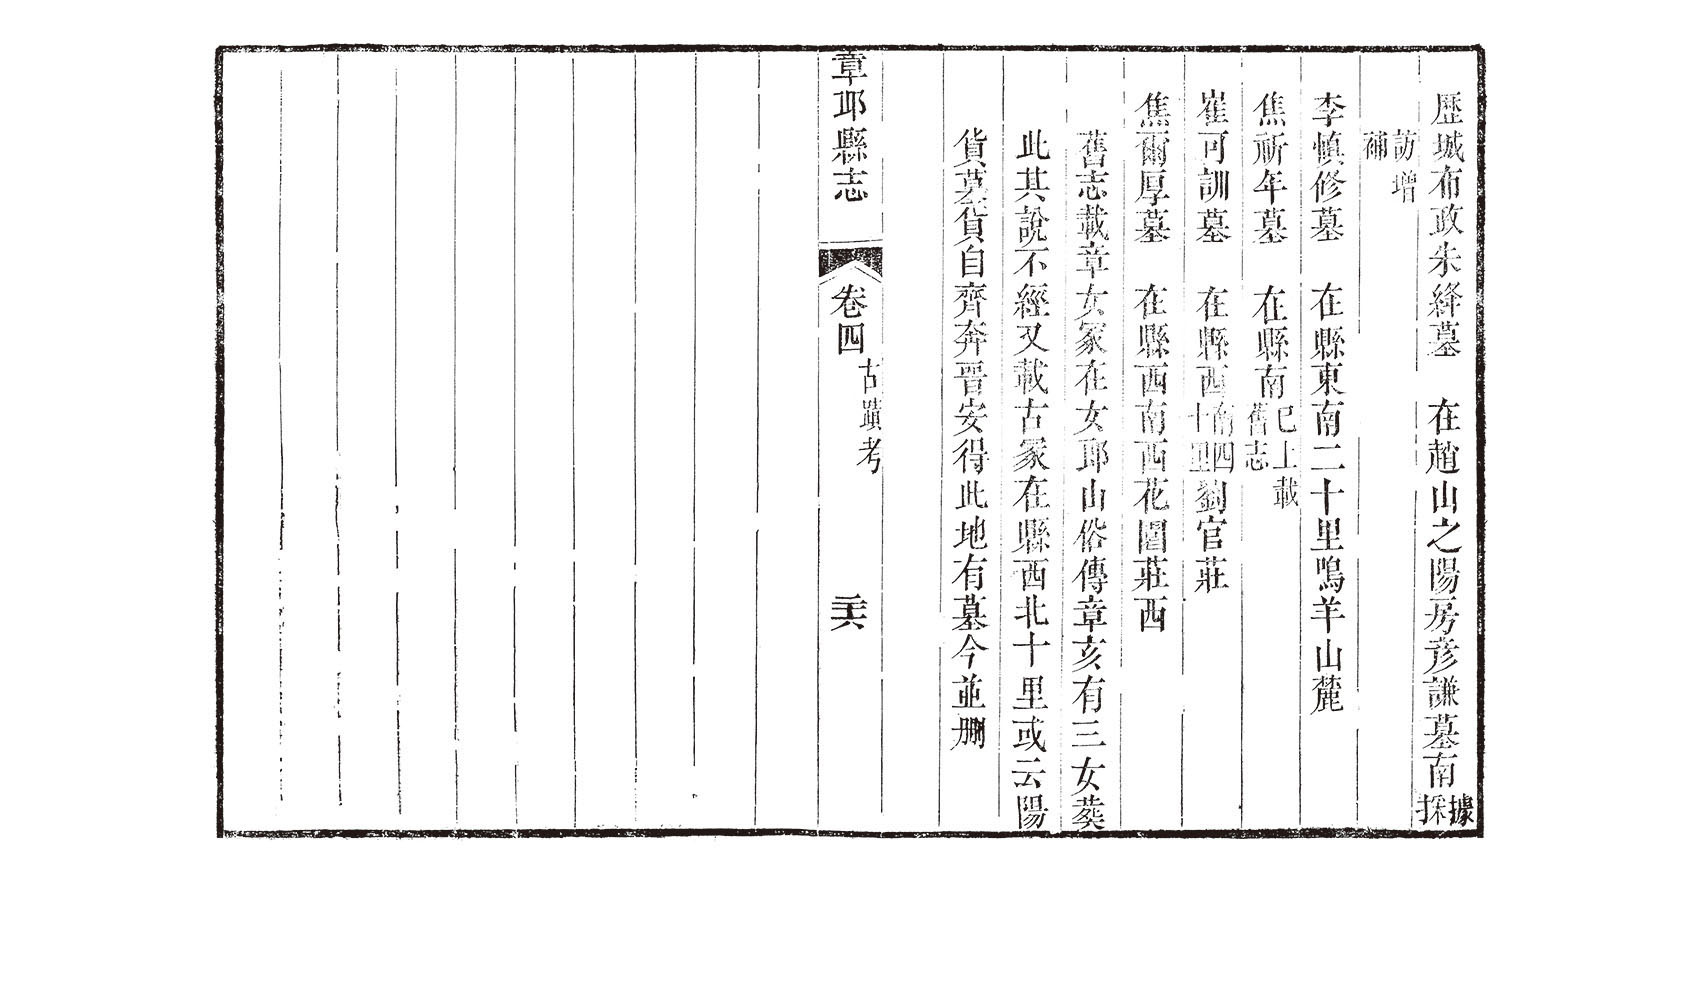 歷城布政朱絳墓　在趙山之陽房彥謙墓南據採
訪增補
李慎修墓　在縣東南二十里鳴羊山麓
焦祈年墓　在縣南已上載舊志
崔可訓墓　在縣西南四十里劉官莊
焦爾厚墓　在縣西南西花園莊西
舊志載章女冢在女郎山俗傳章亥有三女葬
此其說不經又載古冢在縣西北十里或云陽
貨墓貨自齊奔晉安得此地有墓今並刪
章邱縣志　卷四　古蹟考　三六